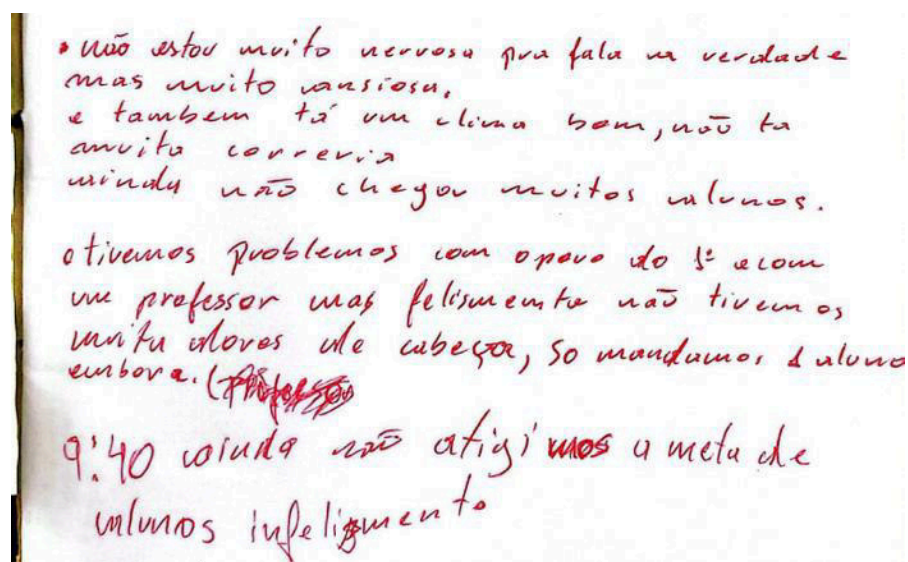 • não estou muito nervosa pra fala na verdade
mas muito ansiosa,
e tambem tá um clima bom, não ta
a muita correria
ainda não chegou muitos alunos.
o tivemos problemas com o povo do 1º e com
um professor mas felismente não tivemos
muita dores de cabeça, so mandamos 1 aluno
embora. (
9:40 ainda não atigimos a meta de
alunos infelizmente